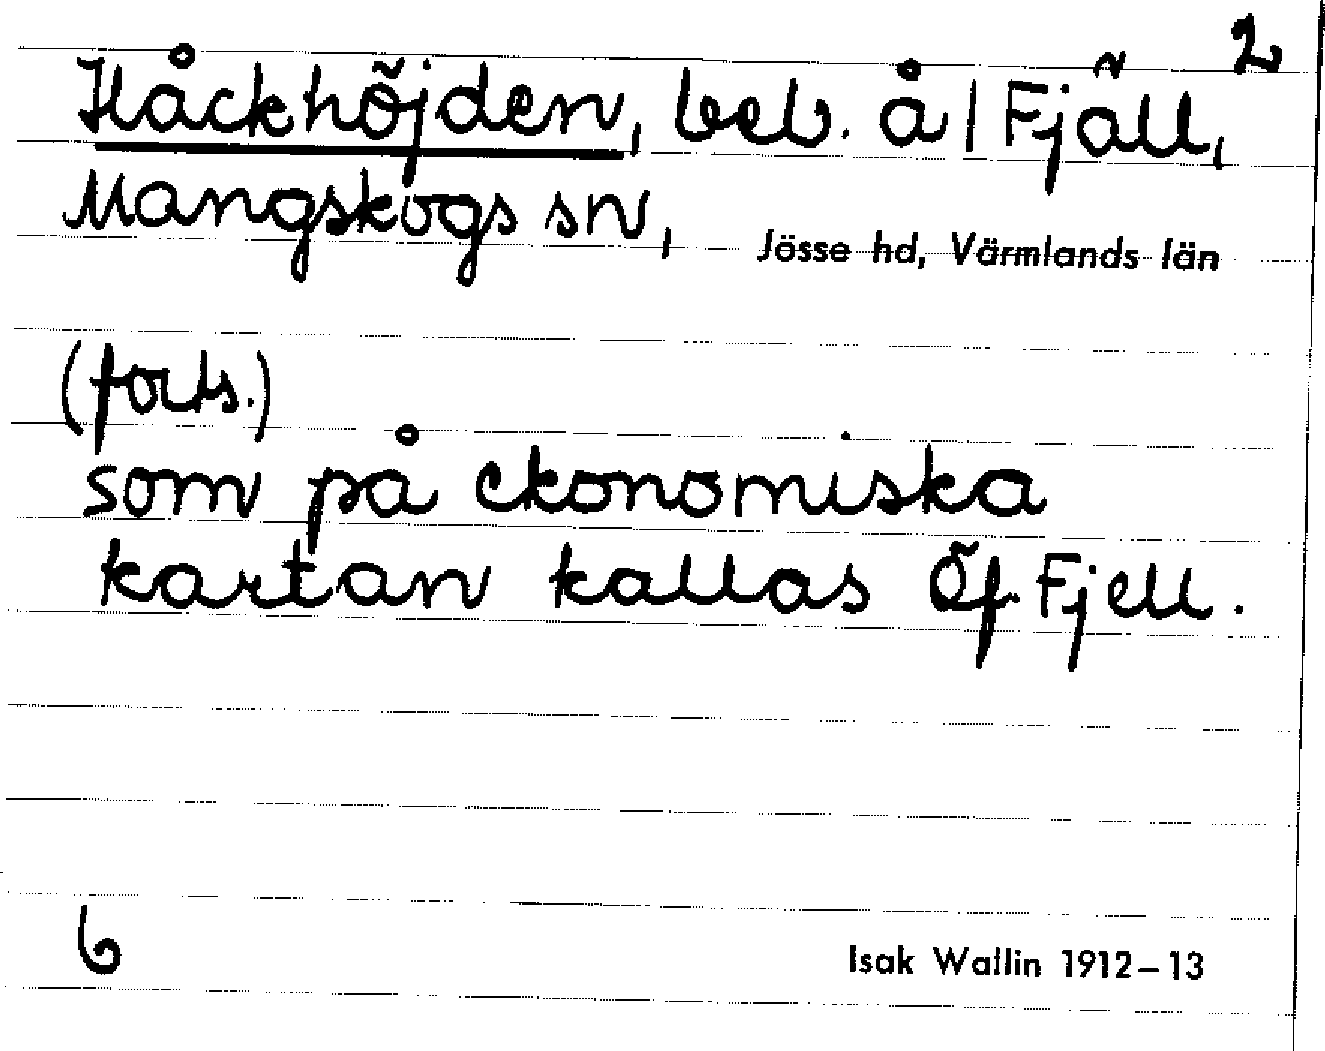 2
Håckhöjden, beb. å | Fjäll,
Mangskogs sn, Jösse hd, Värmlands län
(forts.)
som på ekonomiska
kartan kallas Öf. Fjell.
6
Isak Wallin 1912–13